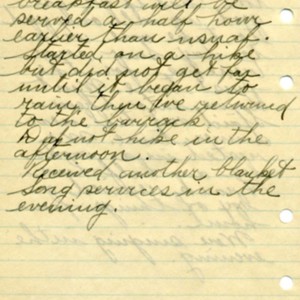 breakfast will be
served a half hour
earlier than usual.
Started on a hike
but did not get far
until it began to
rain, then we returned
to the barrack.
Did not hike in the
afternoon.
Received another blanket
song services in the
evening.